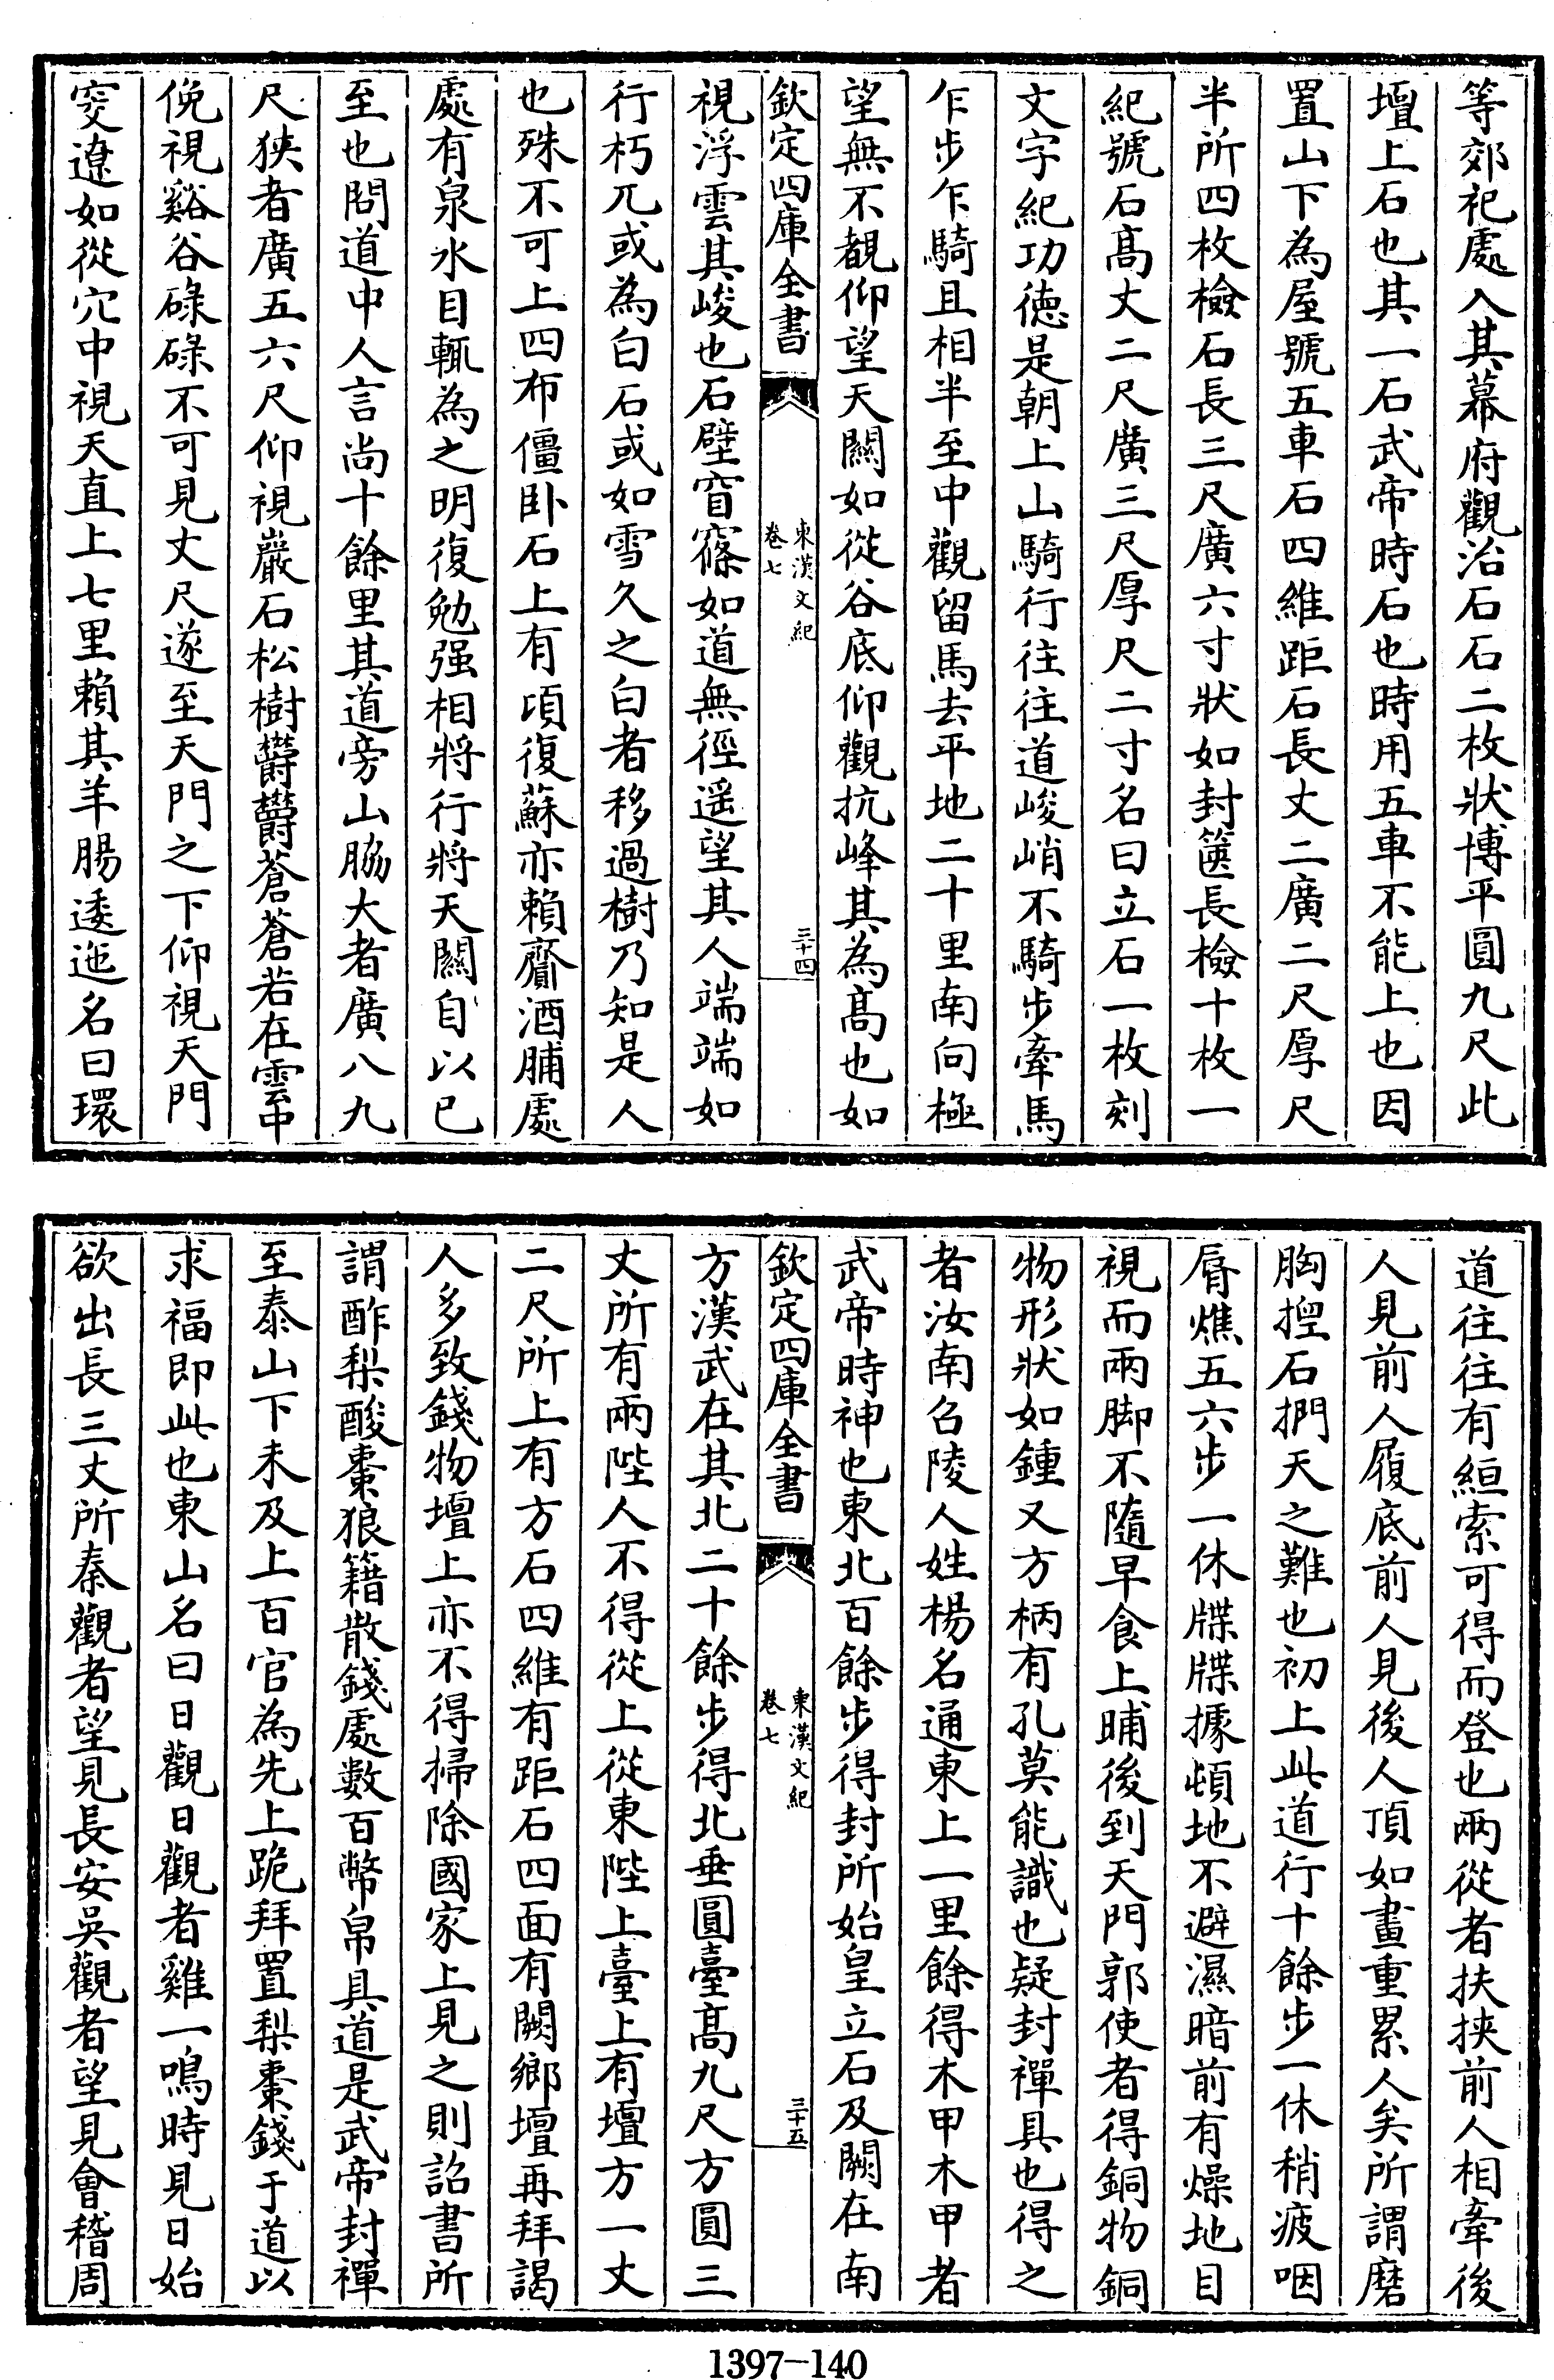 等郊祀處入其幕府觀治石石二枚狀博平圓九尺此
壇上石也其一石武帝時石也時用五車不能上也因
置山下為屋號五車石四維距石長丈二廣二尺厚尺
半所四枚檢石長三尺廣六寸狀如封篋長檢十枚一
紀號石髙丈二尺廣三尺厚尺二寸名曰立石一枚刻
文字紀功德是朝上山騎行往往道峻峭不騎步牽馬
乍步乍騎且相半至中觀留馬去平地二十里南向極
望無不覩仰望天闗如從谷底仰觀抗峰其為髙也如
欽定四庫全書
東漢文紀
卷七
三十四
視浮雲其峻也石壁窅窱如道無徑遥望其人端端如
行朽兀或為白石或如雪久之白者移過樹乃知是人
也殊不可上四布僵卧石上有頃復蘇亦賴齎酒脯處
處有泉水目輒為之明復勉强相將行將天闗自以已
至也問道中人言尚十餘里其道旁山脇大者廣八九
尺狹者廣五六尺仰視巖石松樹欝欝蒼蒼若在雲中
俛視谿谷碌碌不可見丈尺遂至天門之下仰視天門
窔遼如從穴中視天直上七里賴其羊腸逶迤名曰環
道往往有絙索可得而登也兩從者扶挾前人相牽後
人見前人履底前人見後人頂如畫重累人矣所謂磨
胸揑石捫天之難也初上此道行十餘步一休稍疲咽
脣燋五六步一休牒牒據頓地不避濕暗前有燥地目
視而兩脚不隨早食上晡後到天門郭使者得銅物銅
物形狀如鍾又方柄有孔莫能識也疑封禪具也得之
者汝南召陵人姓楊名通東上一里餘得木甲木甲者
武帝時神也東北百餘步得封所始皇立石及闕在南
欽定四庫全書
東漢文紀
卷七
三十五
方漢武在其北二十餘步得北垂圓臺髙九尺方圓三
丈所有兩陛人不得從上從東陛上臺上有壇方一丈
二尺所上有方石四維有距石四面有闕鄉壇再拜謁
人多致錢物壇上亦不得掃除國家上見之則詔書所
謂酢梨酸棗狼籍散錢處數百幣帛具道是武帝封禪
至泰山下未及上百官為先上跪拜置梨棗錢于道以
求福即此也東山名曰日觀日觀者雞一鳴時見日始
欲出長三丈所秦觀者望見長安吳觀者望見會稽周
1397-140